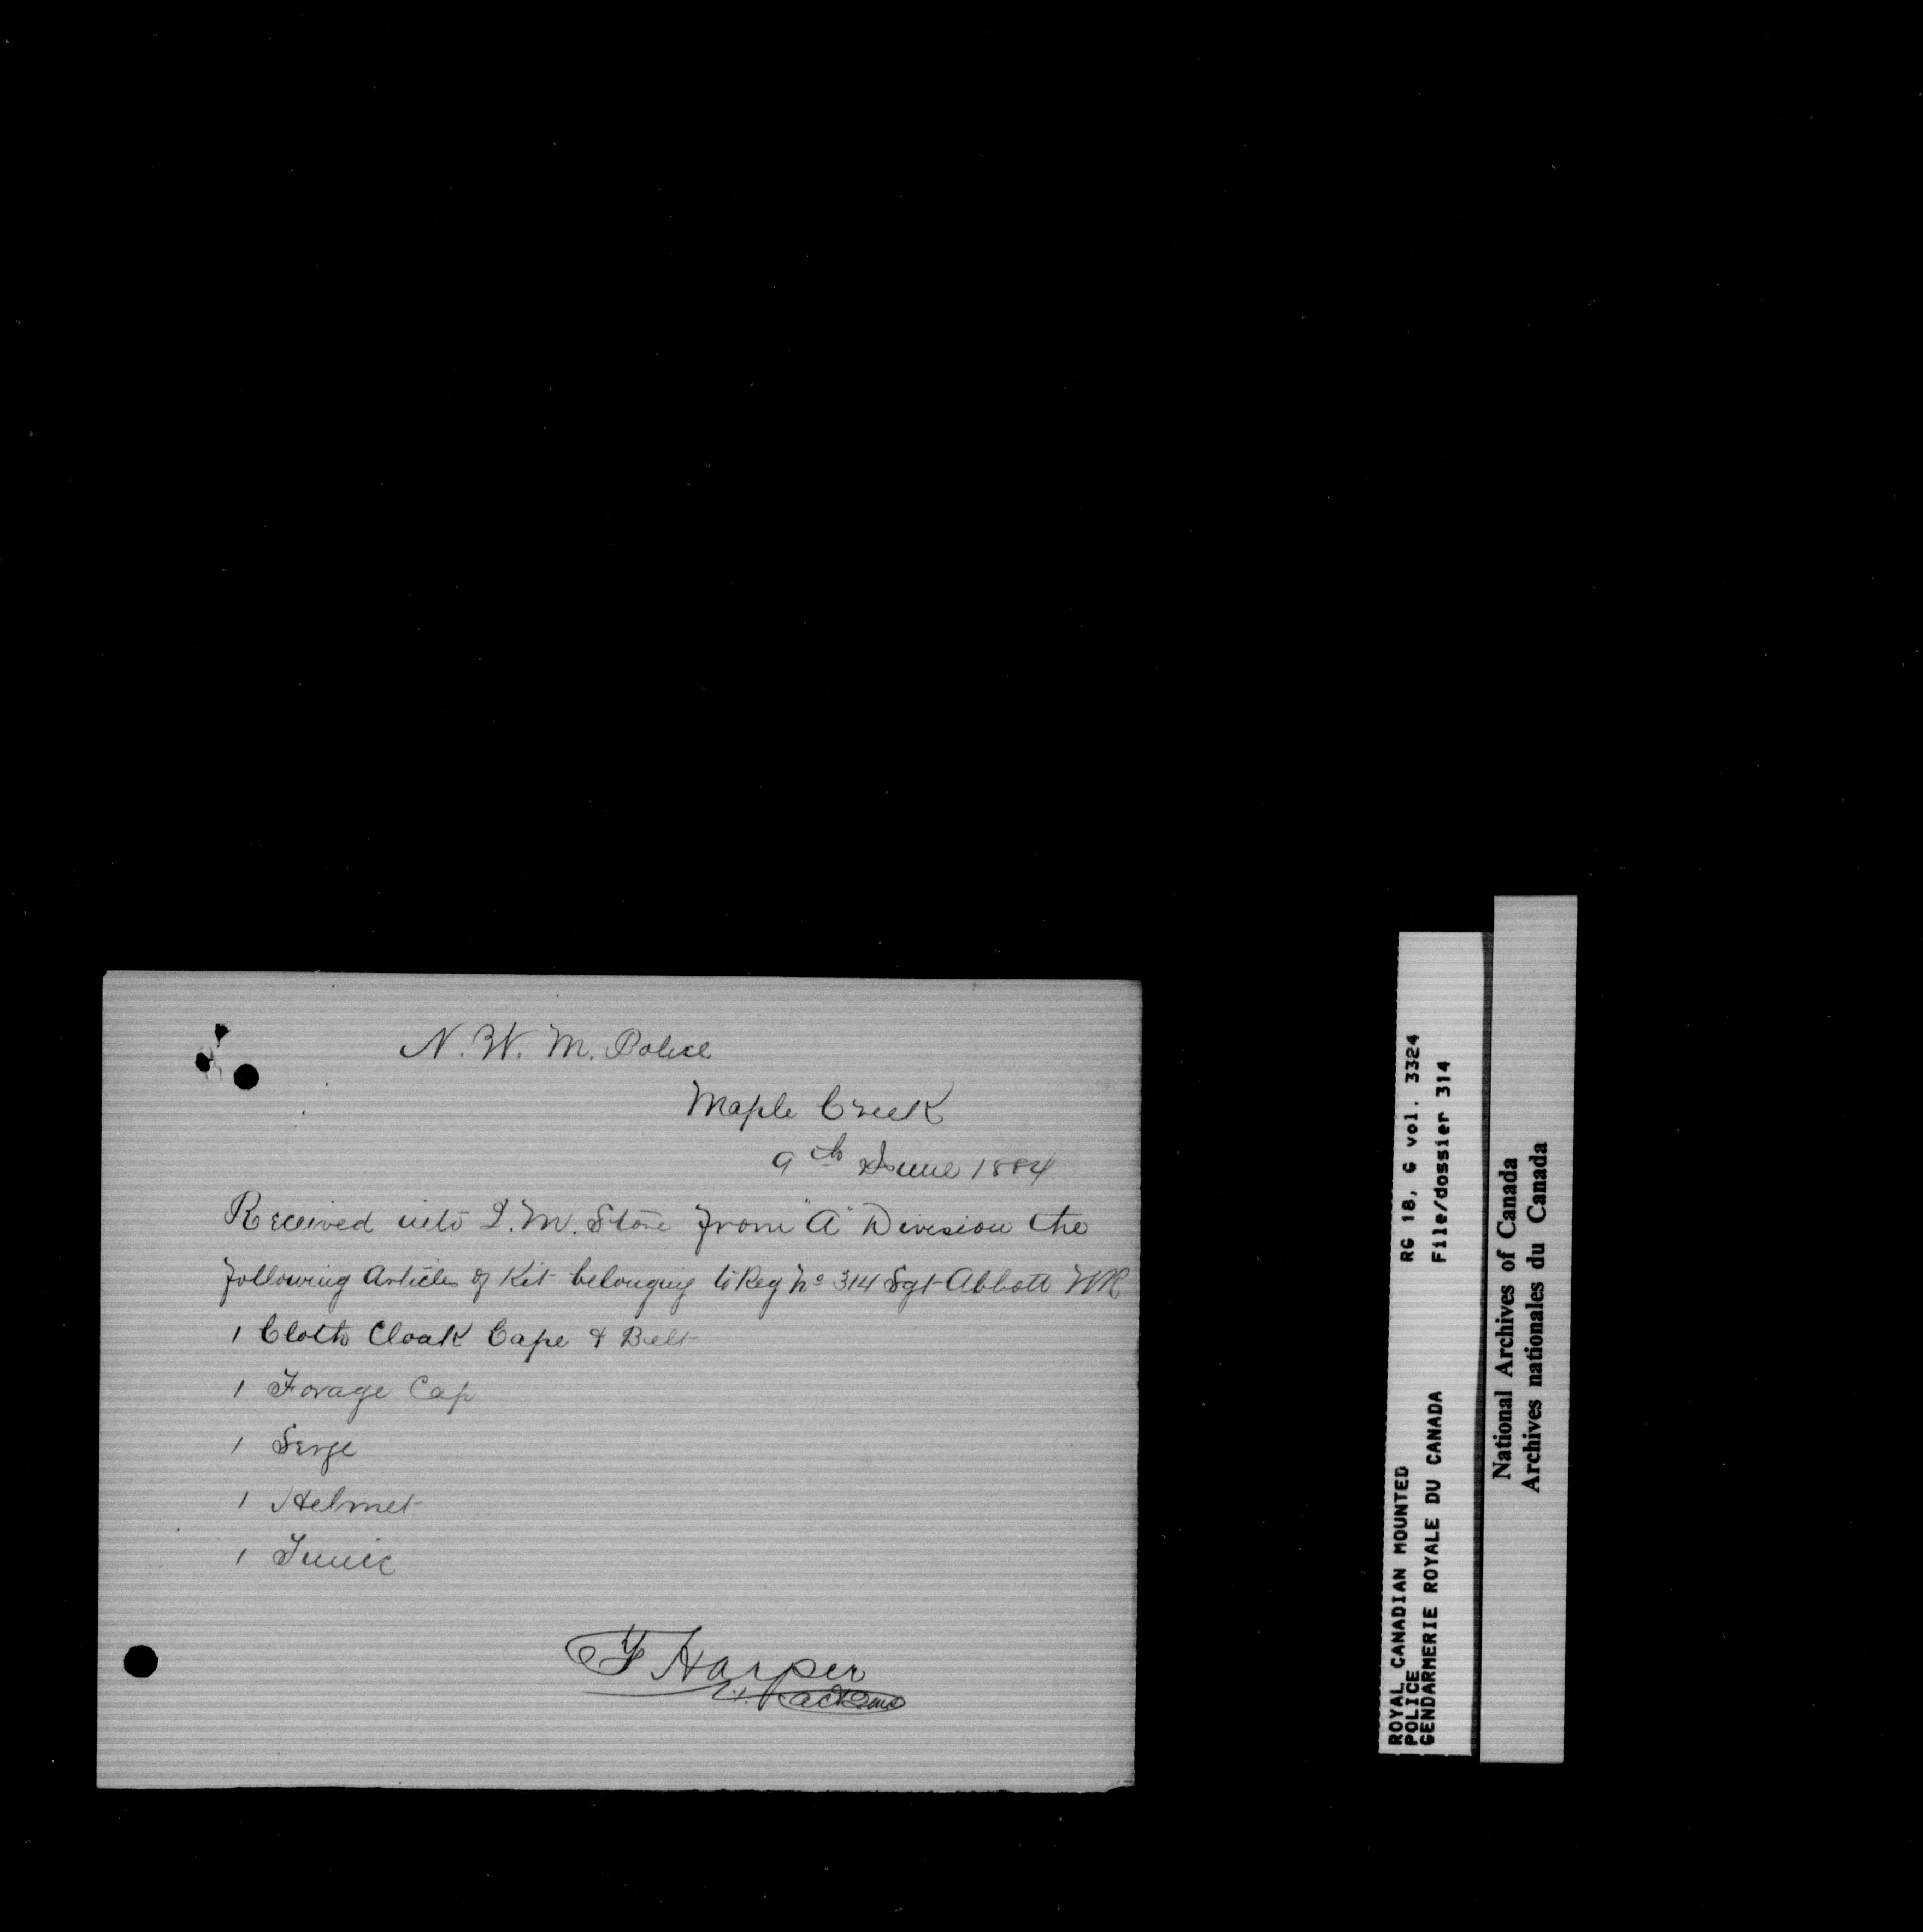 N. W. M. Police
Maple Creek
9th June 1884
Received into Q.M. Store from "A" Division the
following Articles of Kit belonging to Reg No 314 Sgt Abbott WR
1 Cloth Cloak Cape & Belt
1 Forage Cap
1 Serge
1 Helmet
1 Tunic
F Harper
ROYAL CANADIAN MOUNTED
POLICE
GENDARMERIE ROYALE DU CANADA
RG 18, G vol. 3324
File/dossier 314
National Archives of Canada
Archives nationales du Canada